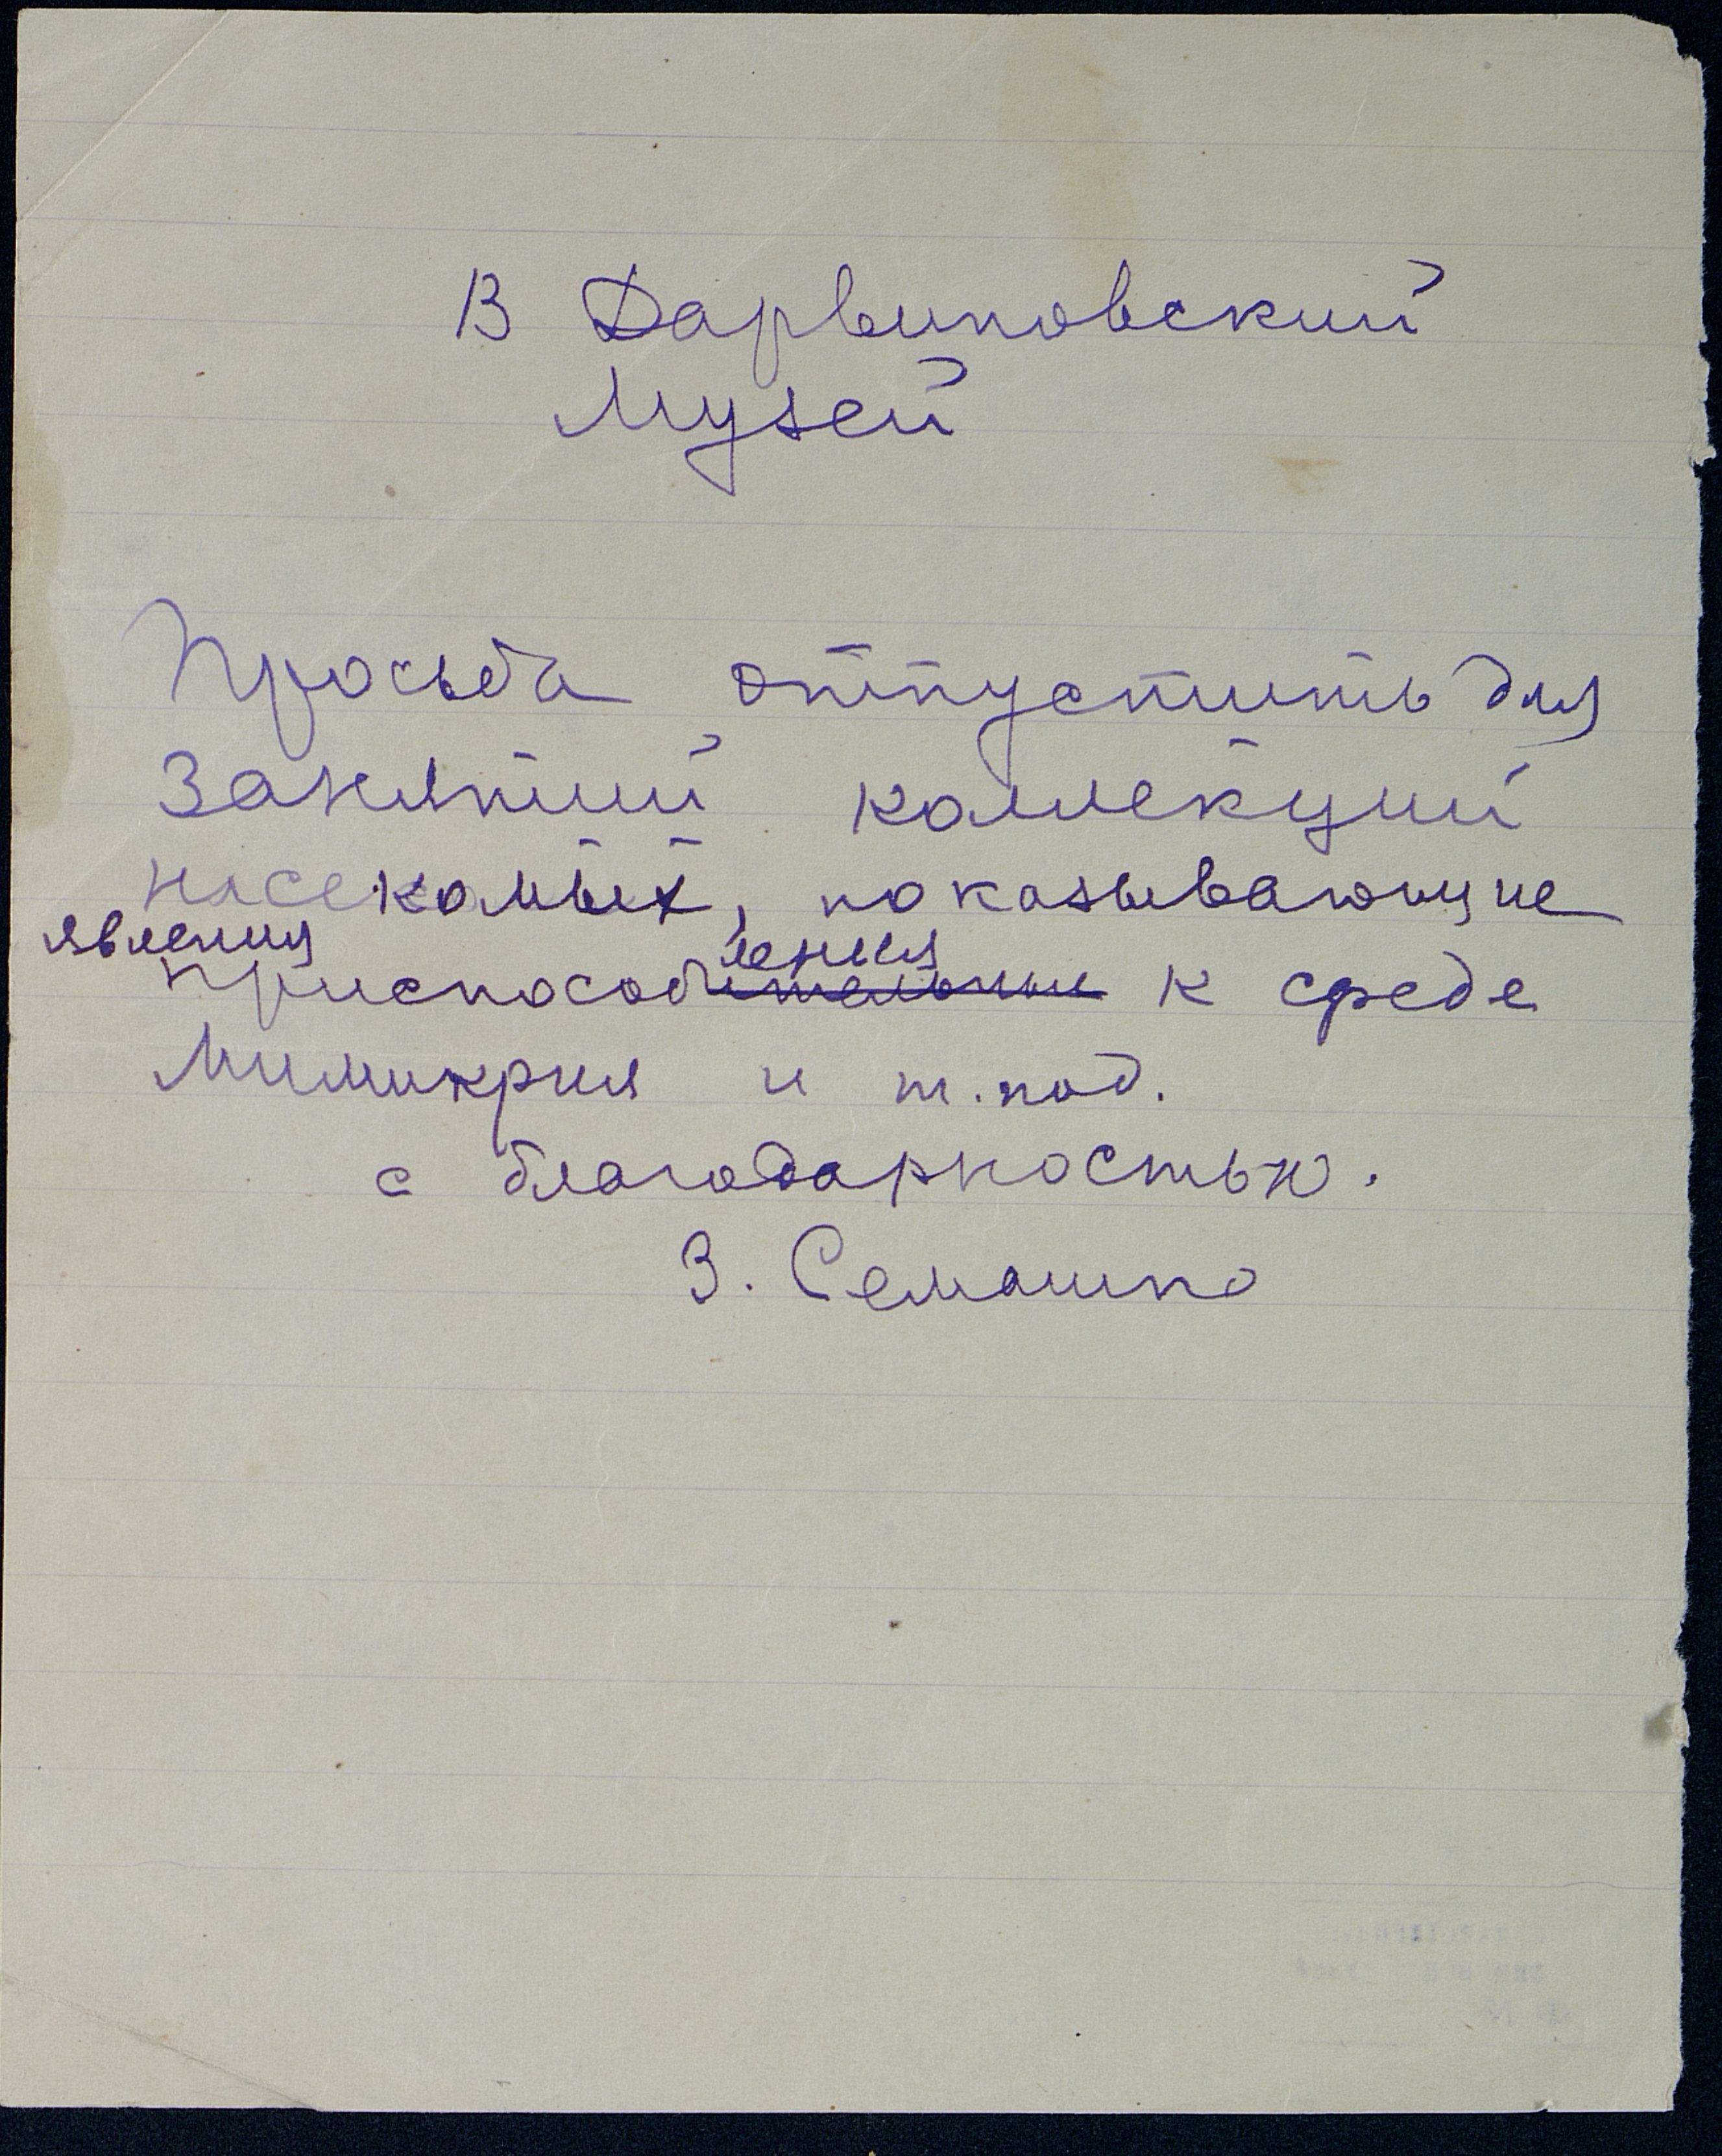 В Дарвиновский
Музей
Просьба отпустить для
занятий коллекций
насекомых, показывающие
явления
приспособления к среде
Мимикрия и т.под.
с благодарностью.
З. Семашко